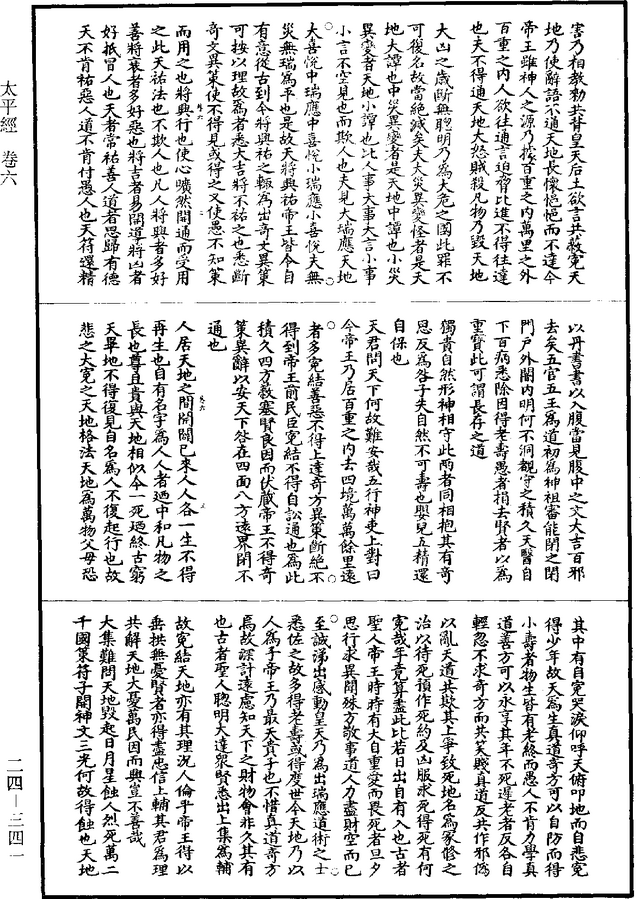 太平經 卷六
害乃相教勑共背皇天后土欲言共教冤天
地乃使辭語不通天地長懷悒悒而不達今
帝王雖神人之源乃據百重之內萬里之外
百重之內人欲往通言迫脅比進不得往達
也夫不得通天地大怨賊殺凡物乃毀天地
大凶之歲斷無聰明乃為大危之國此罪不
可復名故當絕滅矣夫大災異變怪者是天
地大譚也中災異變者是天地中譚也小災
異變者天地小譚也比人大事大事大言小事
小言不空見也而欺人也夫見大瑞應天地
大喜悅中瑞應中喜悅小瑞應小喜悅夫無
災無瑞為平也是故天將興祐帝王皆令自
有意從古到今將興祐之輒為出奇文異策
可按以理故為者悉大吉將不祐之也悉斷
奇文異策使不得見或得之又使愚不知策
而用之也將興行也使心曠然開通而受用
之此天祐法也不欺人也凡人將興者多好
善將衰者多好惡也將吉者易開導將凶者
好抵冒人也天者常祐善人道者思歸有德
天不肯祐惡人道不肯付愚人也天符還精
以丹書書以入腹當見腹中之文大吉百邪
去矣五官五王為道初為神祖審能閉之閉
門戶外闇內明何不洞覩守之積久天醫自
下百病悉除因得老壽愚者捐去賢者以為
重寶此可謂長存之道
獨貴自然形神相守此兩者同相抱其有奇
思反為咎子失自然不可壽也嬰兒五精還
自保也
天君問天下何故難安哉五行神吏上對曰
今帝王乃居百重之內去四境萬萬餘里遠
者多冤結善惡不得上達奇方異策斷絕不
得到帝王前民臣冤結不得自訟通也為此
積久四方蔽塞賢良因而伏藏帝王不得奇
策異辭以安天下咎在四面八方遠界閉不
通也
人居天地之間開闢已來人人各一生不得
再生也自有名字為人人者迺中和凡物之
長也尊且貴與天地相似今一死迺終古窮
天畢地不得復見自名為人不復起行也故
悲之大冤之天地格法天地為萬物父母恐
其中有自冤哭淚仰呼天俯叩地而自悲冤
得少年故天為生真道奇方可以自防而得
小壽者物生皆有老終而愚人不肯力學真
道善方可以永享其年不死遲老者反各自
輕忽不求奇方而共笑賤真道反共作邪偽
以亂天道共欺其上爭致死地名為冢修之
治以待死預作死約及凶服求死得死有何
冤哉年竟算盡此比若日出自有入也古者
聖人帝王時時有大自重愛而畏死者旦夕
思行求異聞殊方敬事道人力盡財空而已
至誠涕出感動皇天乃為出瑞應道術之士
悉佐之故多得老壽或得度世今天地乃以
人為子帝王乃最天貴子也不惜真道奇方
焉故深計遠慮知天下之財物會非久其有
也古者聖人聰明大達眾賢悉出上集為輔
故冤結天地亦有其理況人倫乎帝王得以
垂拱無憂賢者亦得盡忠信上輔其君為理
共解天地大憂萬民因而興宣不善哉
大集難問天地毀起日月星蝕人烈死萬二
千國策符子閉神文三光何故得蝕也天地
二四-三四一